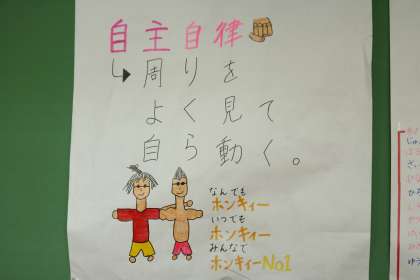 自主自律
周りを
よく見て
自ら動く。
なんでも
ホンキィー
いつでも
ホンキィー
みんなで
ホンキィーNo1